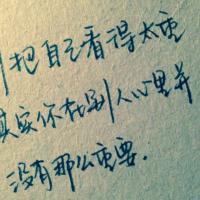 把自己看得太重
其实你在别人心里并
没有那么重要.